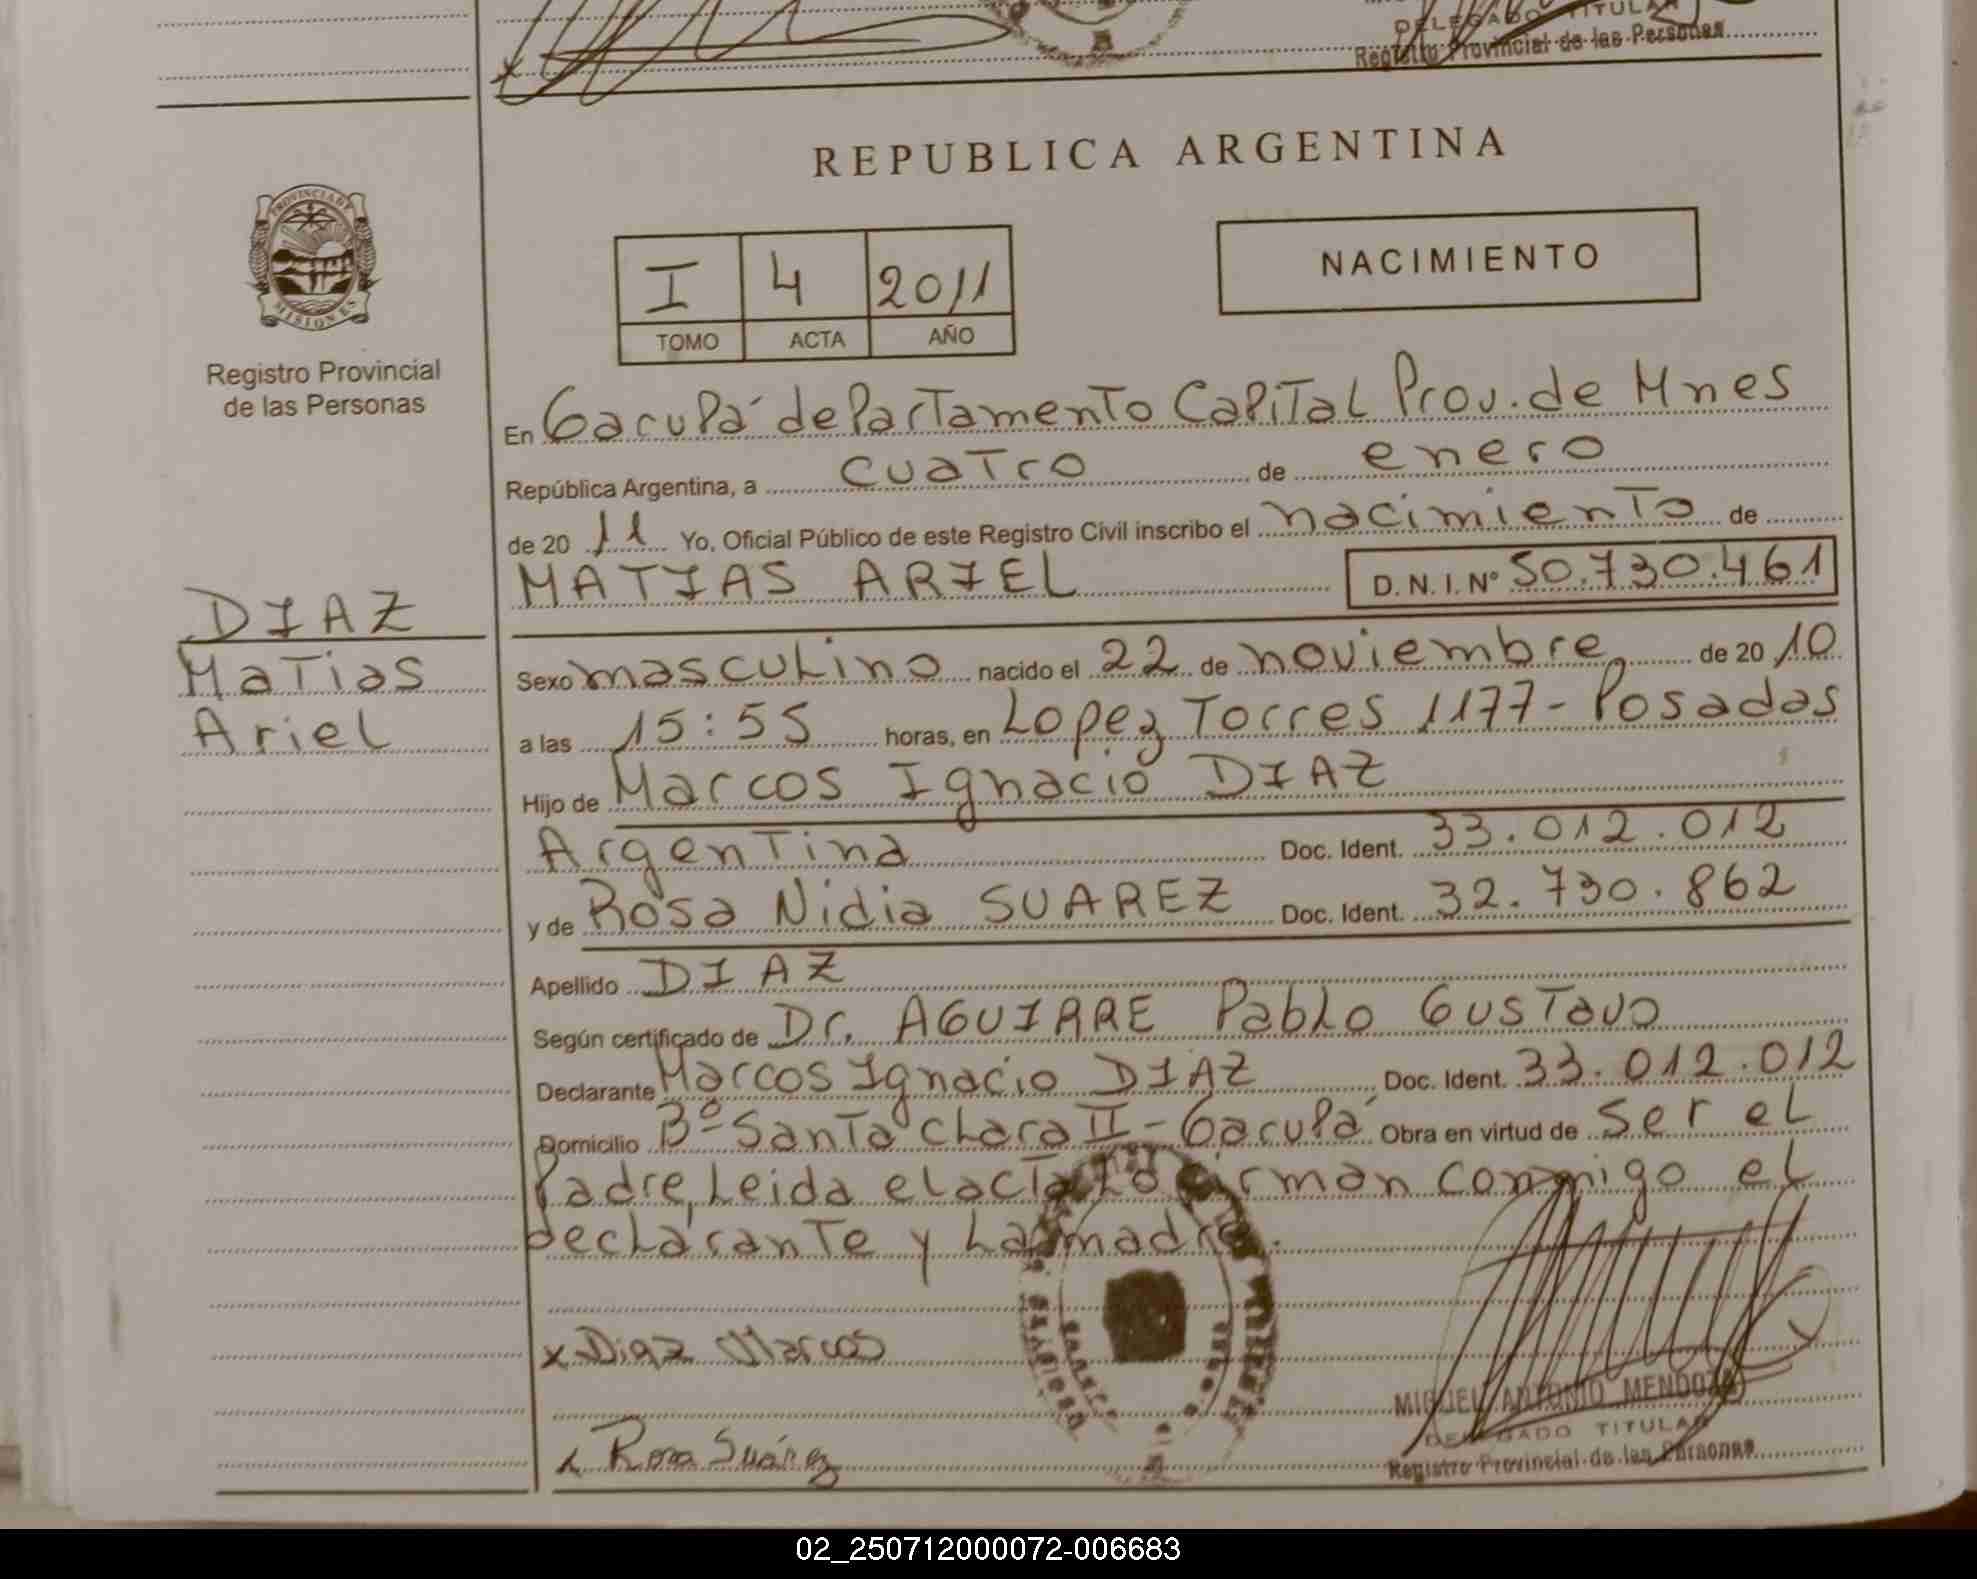 DELEGADO TITULAR
Registro Provincial de las Personas
REPUBLICA ARGENTINA
PROVINCIA DE
MISIONES
Registro Provincial
de las Personas
I 4 2011
TOMO ACTA AÑO
NACIMIENTO
En Garupá departamento Capital Prov. de Mnes
República Argentina, a cuatro de enero
de 20 11 Yo, Oficial Público de este Registro Civil inscribo el nacimiento de
MATIAS ARIEL D.N.I. Nº 50.730.461
DIAZ
Matias
Ariel
Sexo masculino nacido el 22 de noviembre de 20 10
a las 15:55 horas, en Lopez Torres 1177 - Posadas
Hijo de Marcos Ignacio DIAZ
Argentina Doc. Ident. 33.012.012
y de Rosa Nidia SUAREZ Doc. Ident. 32.730.862
Apellido DIAZ
Según certificado de Dr. AGUIRRE Pablo Gustavo
Declarante Marcos Ignacio DIAZ Doc. Ident. 33.012.012
Domicilio Bº Santa Clara II - Garupá Obra en virtud de ser el
Padre, Leida el acta La firman conmigo el
declarante y La madre.
x Diaz Marcos
x Rosa Suárez
MIGUEL ANTONIO MENDOZA
DELEGADO TITULAR
Registro Provincial de las Personas
02_250712000072-006683